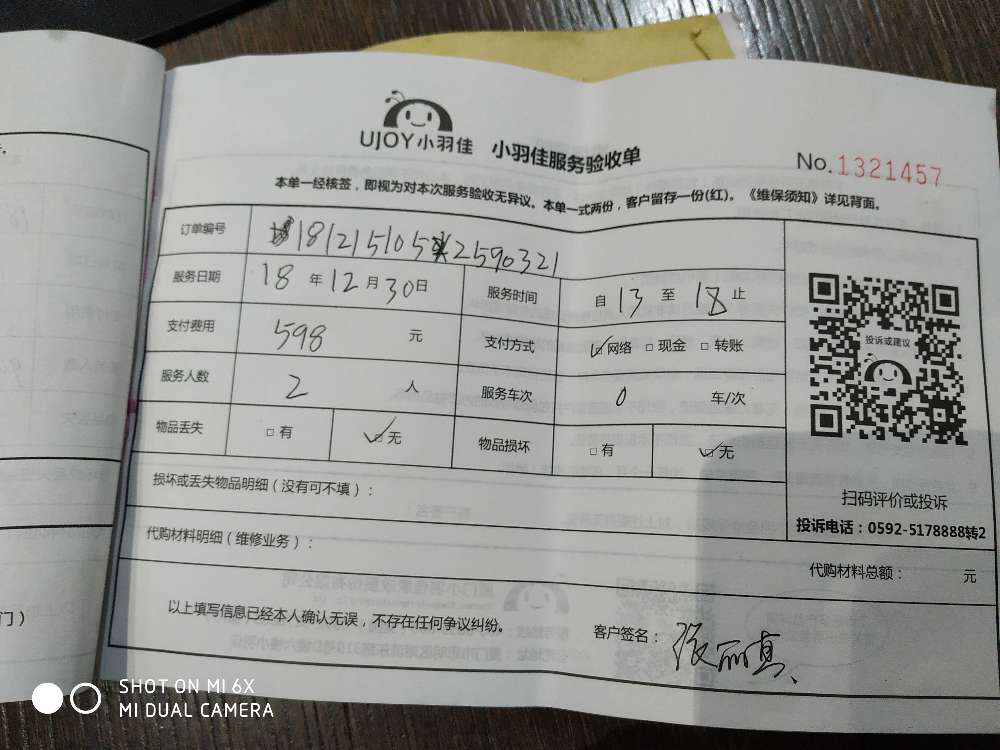 UJOY小羽佳 小羽佳服务验收单 No.1321457
本单一经核签，即视为对本次服务验收无异议。本单一式两份，客户留存一份(红)。《维保须知》详见背面。
订单编号 181215105 2590321
服务日期 18年12月30日 服务时间 自13至18止
支付费用 598元 支付方式 ☑网络 □现金 □转账
服务人数 2人 服务车次 0车/次
物品丢失 □有 ☑无 物品损坏 □有 ☑无
投诉或建议
扫码评价或投诉
投诉电话：0592-5178888转2
损坏或丢失物品明细（没有可不填）：
代购材料明细（维修业务）：
代购材料总额： 元
以上填写信息已经本人确认无误，不存在任何争议纠纷。
客户签名：张丽真
门）
SHOT ON MI 6X
MI DUAL CAMERA